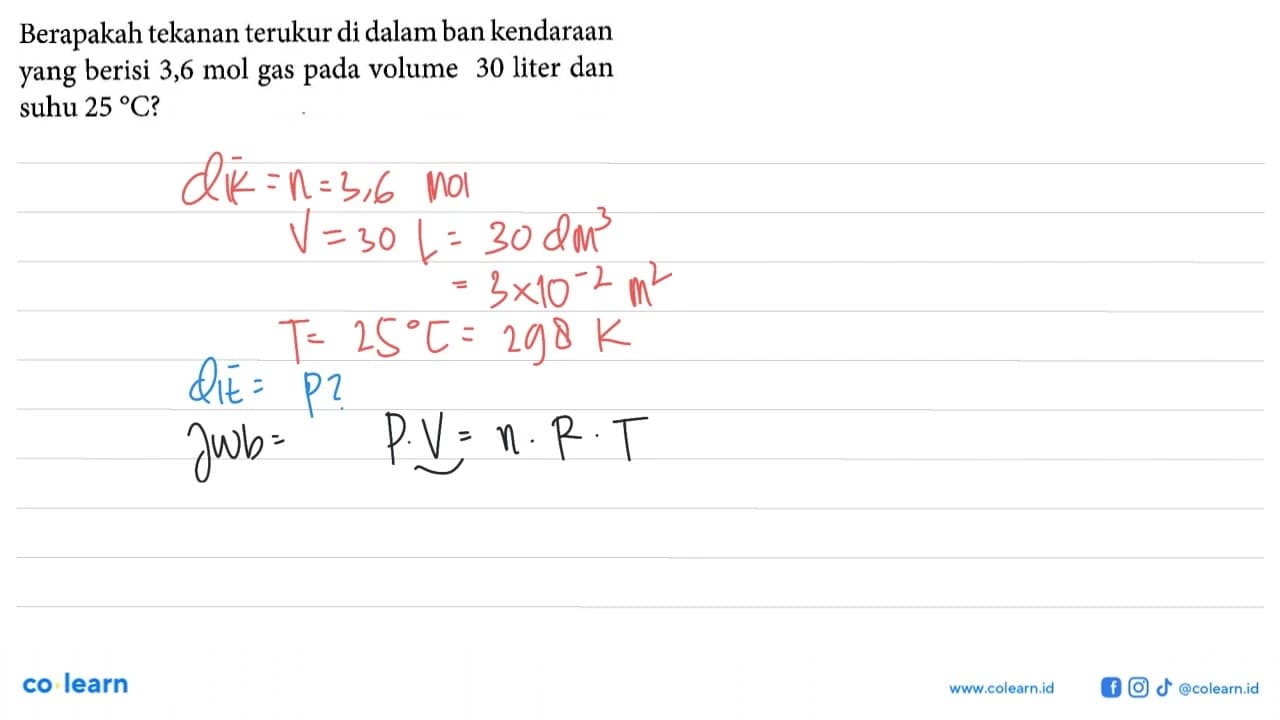 Berapakah tekanan terukur di dalam ban kendaraan
yang berisi 3,6 mol gas pada volume 30 liter dan
suhu 25 °C?
dik = n = 3,6 mol
V = 30 L = 30 dm³
= 3×10⁻² m²
T = 25°C = 298 K
dit = P?
Jwb = P.V = n . R . T
co learn
www.colearn.id
@colearn.id